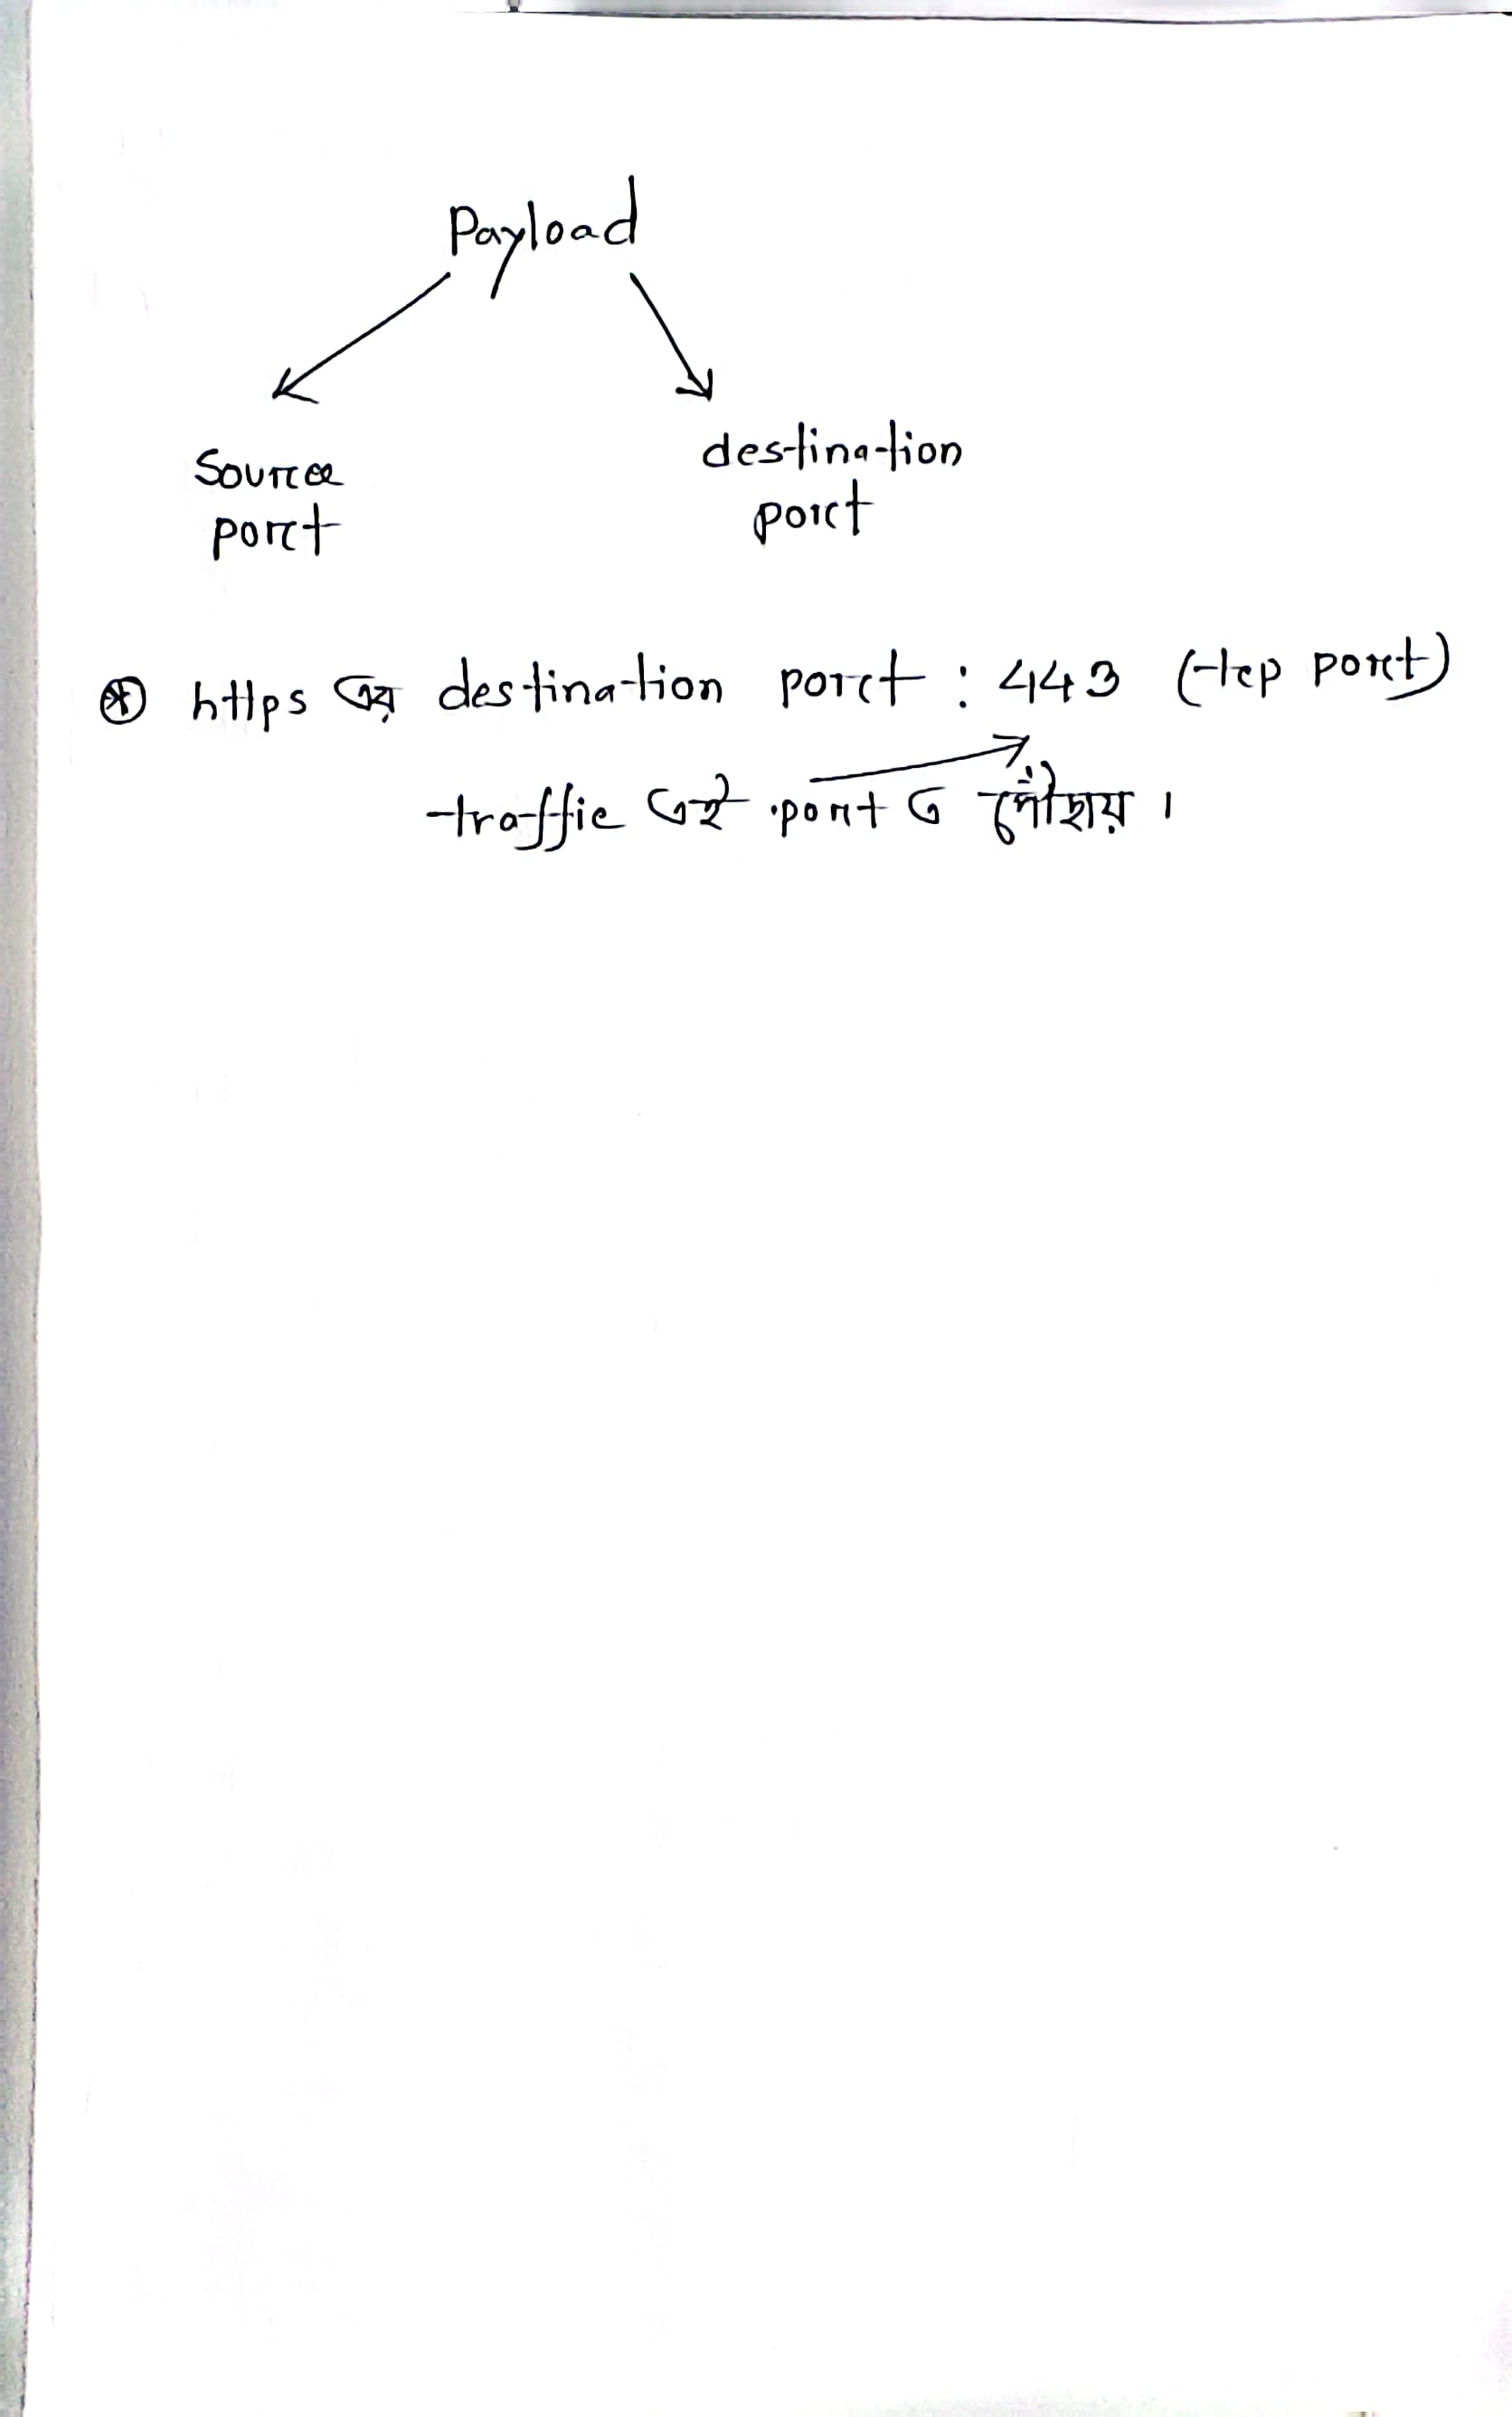 Payload
source
port
destination
port
⊛ https এর destination port : 443 (tcp port)
traffic এই port এ পৌঁছায় ।